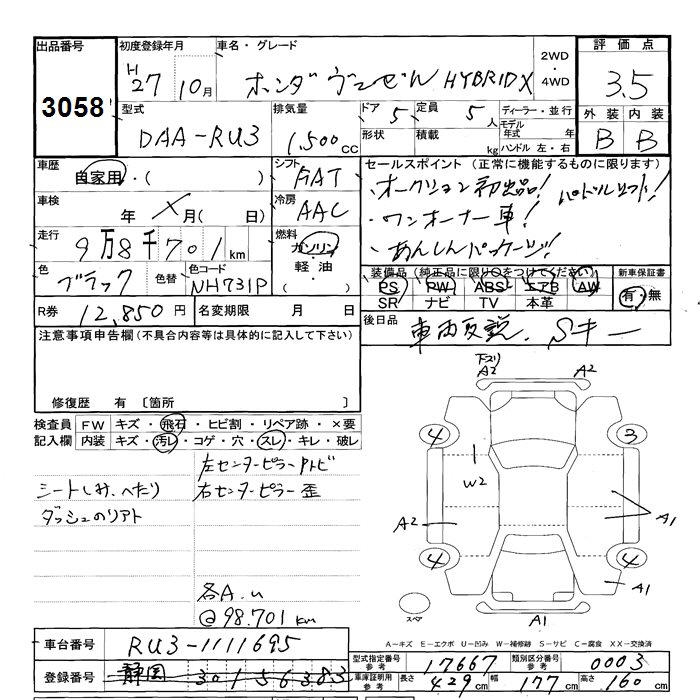 出品番号
3058
初度登録年月
H27 10月
車名・グレード
ホンダ ヴェゼル HYBRID X
2WD
・
4WD
評価点
3.5
外装 内装
B B
型式
DAA-RU3
排気量
1,500cc
ドア 5
形状
定員 5人
積載 kg
ディーラー・並行
モデル年式 年
ハンドル 左・右
車歴
自家用・( )
シフト
FAT
車検
年 月( 日)
冷房
AAC
走行
9万8千701km
燃料
ガソリン
軽油
( )
色
ブラック
色替
色コード
NH731P
R券 12,850円
名変期限 月 日
セールスポイント(正常に機能するものに限ります)
・オークション初出品! パドルシフト!
・ワンオーナー車!
・あんしんパッケージ!
装備品(純正品に限り○をつけてください)
PS PW ABS エアB AW
SR ナビ TV 本革
新車保証書
有・無
後日品
車両取説. Sキー
注意事項申告欄(不具合内容等は具体的に記入して下さい)
修復歴 有〔箇所 〕
検査員記入欄
FW キズ・飛石・ヒビ割・リペア跡・×要
内装 キズ・汚レ・コゲ・穴・スレ・キレ・破レ
左センターピラーアトビ
シートしみ.へたり
右センターピラー歪
ダッシュのリアト
各A.u
@98.701km
下スリ
A2 A2
4 3
W2
A2 A1
4 4
A1
スペア
A1
A-キズ E-エクボ U-凹み W-補修跡 S-サビ C-腐食 XX-交換済
車台番号 RU3-1111695
登録番号 静岡 301 5 6383
型式指定番号参考 17667
類別区分番号参考 0003
車庫証明用参考 長さ 429cm 幅 177cm 高さ 160cm